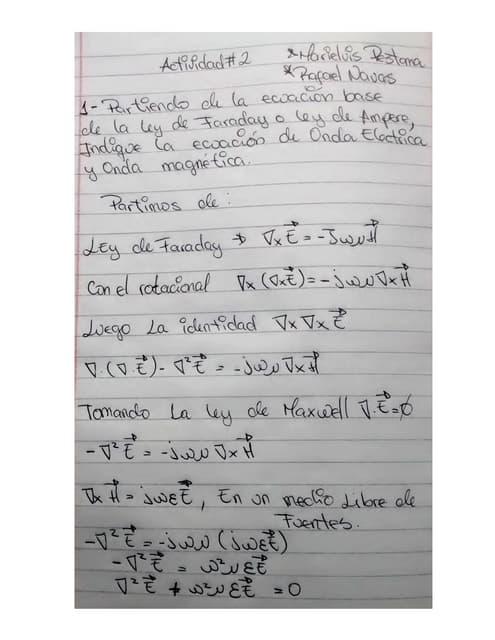 Actividad #2
*Marielvis Pestana
*Rafael Navas
1- Partiendo de la ecuación base
de la ley de Faraday o ley de Ampere,
Indique la ecuación de Onda Electrica
y Onda magnética.
Partimos de:
Ley de Faraday → ∇x E⃗ = -Jωμ H⃗
Con el rotacional ∇x (∇x E⃗) = -jωμ ∇x H⃗
Luego La identidad ∇x ∇x E⃗
∇·(∇·E⃗) - ∇² E⃗ = -jωμ ∇x H⃗
Tomando La ley de Maxwell ∇·E⃗ = ∅
-∇² E⃗ = -jωμ ∇x H⃗
∇x H⃗ = jωε E⃗, En un medio Libre de
Fuentes.
-∇² E⃗ = -jωμ (jωε E⃗)
-∇² E⃗ = ω² μ ε E⃗
∇² E⃗ + ω² μ ε E⃗ = 0